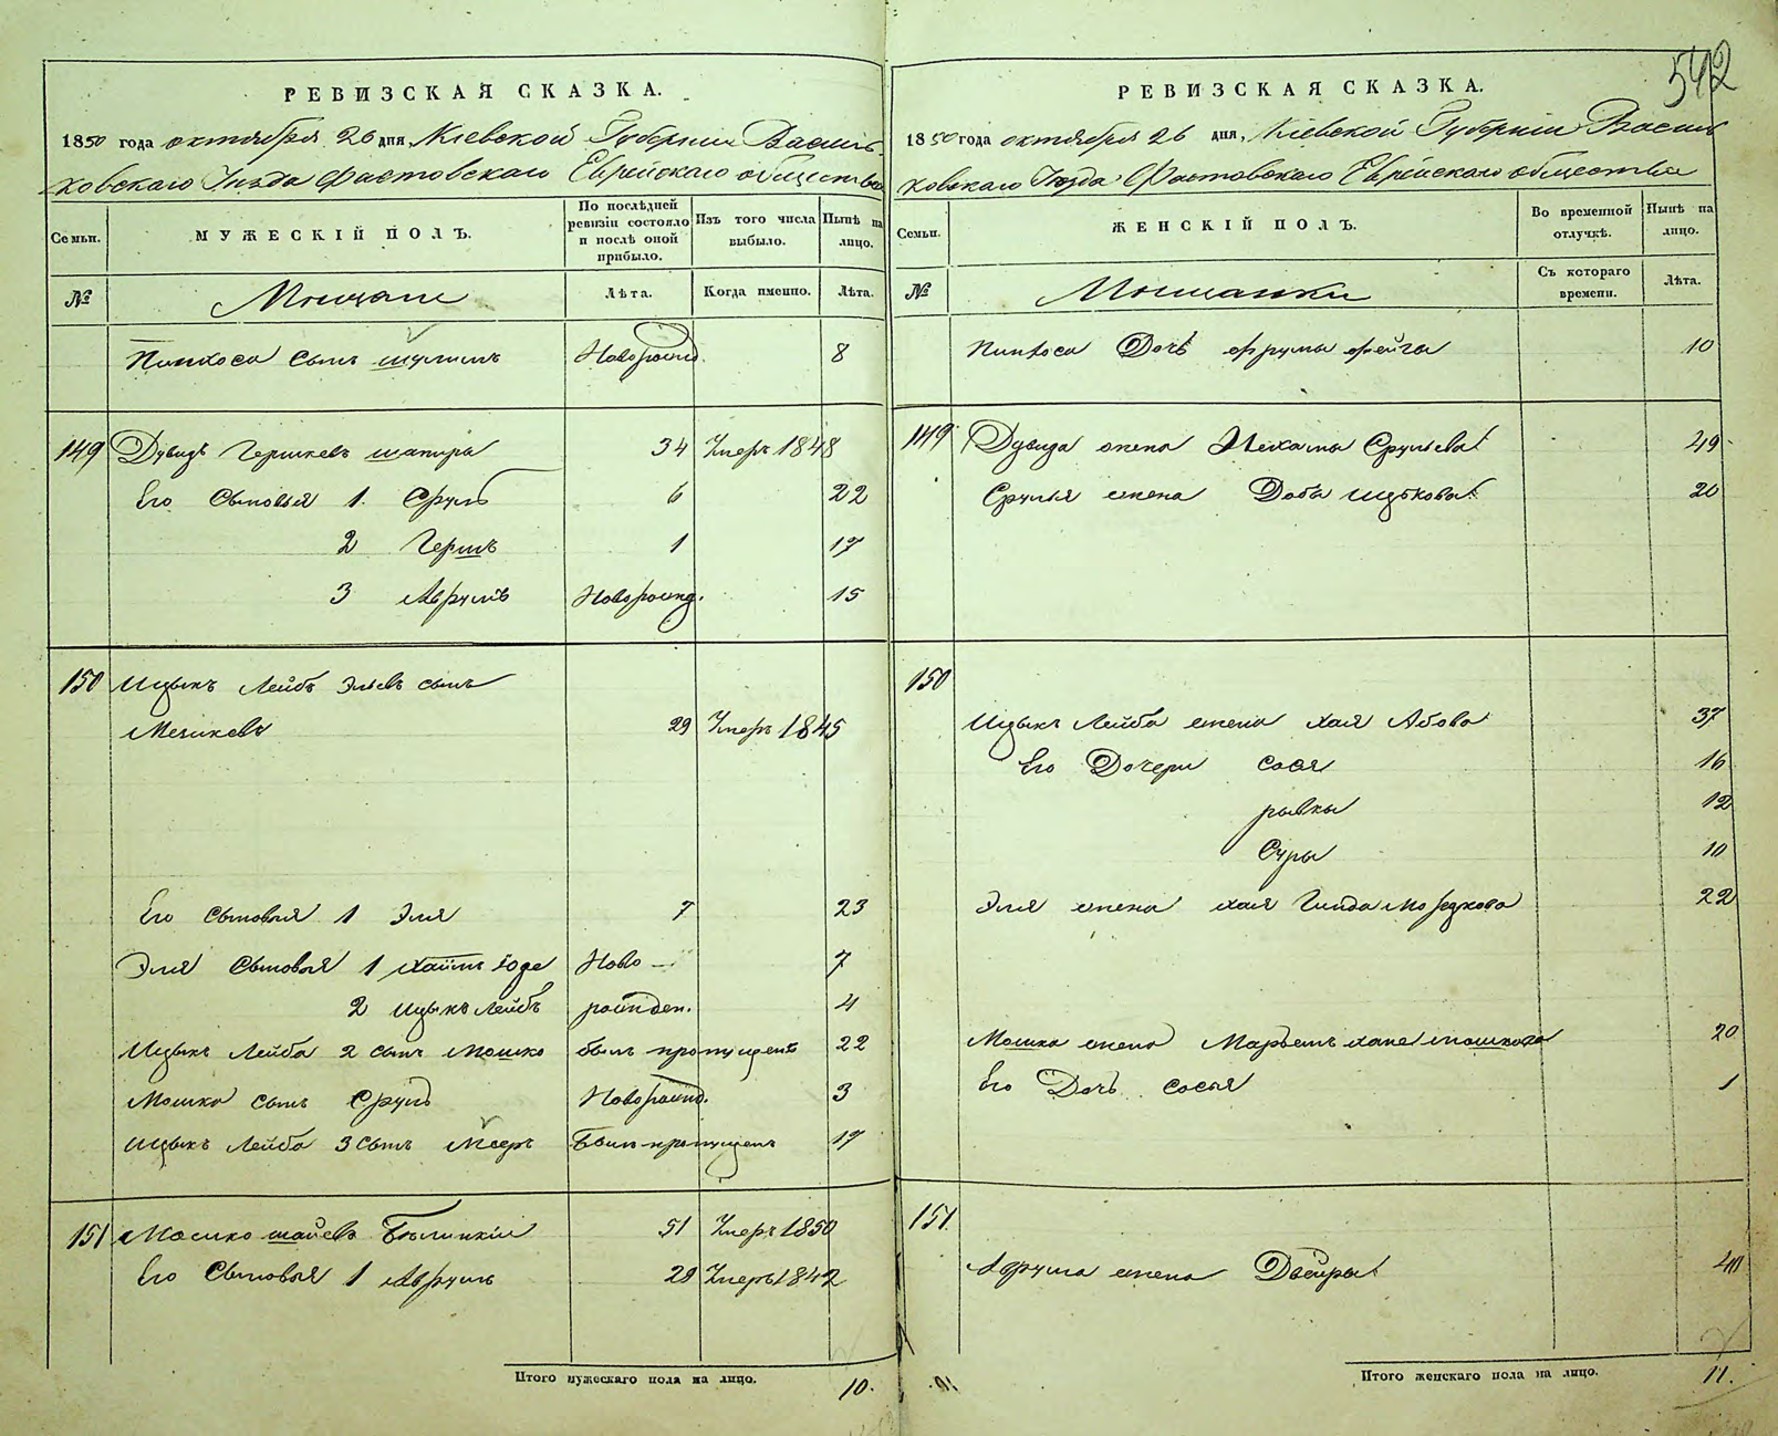 542
РЕВИЗСКАЯ СКАЗКА.
1850 года октября 26 дня, Кіевской Губерніи Василь-
ковскаго Уѣзда Фастовскаго Еврейскаго общества
Семьи. МУЖЕСКІЙ ПОЛЪ. По послѣдней ревизіи состояло и послѣ оной прибыло. Изъ того числа выбыло. Нынѣ на лицо.
№ Мещане Лѣта. Когда именно. Лѣта.
Пинхоса сынъ Шулимъ Новорожд. 8
149 Дувидъ Гершковъ Шапира 34 Умеръ 1848
Его Сыновья 1. Сруль 6 22
2 Гершъ 1 17
3 Аврумъ Новорожд. 15
150 Ицыкъ Лейбъ Эльевъ сынъ
29 Умеръ 1845
Его Сыновья 1 Эля 7 23
Эля Сыновья 1 Хаимъ Ново- 7
2 Ицыкъ Лейбъ рожден. 4
Ицыкъ Лейба 2 сынъ Мошко былъ пропущенъ 22
Мошка сынъ Сруль Новорожд. 3
Ицыкъ Лейба 3 сынъ Мееръ Былъ пропущенъ 17
151 Мошко Шаевъ Бѣлицкій 51 Умеръ 1850
Его Сыновья 1 Аврумъ 29 Умеръ 1842
Итого мужескаго пола на лицо. 10.
РЕВИЗСКАЯ СКАЗКА.
1850 года октября 26 дня, Кіевской Губерніи Василь
ковскаго Уѣзда Фастовскаго Еврейскаго общества
Семьи. ЖЕНСКІЙ ПОЛЪ. Во временной отлучкѣ. Нынѣ на лицо.
№ Мещанки Съ котораго времени. Лѣта.
Пинхоса Дочь Фрума Фейга 10
149 Дувида жена Нехама Срулева 49
Сруля жена Доба Ицкова 20
150
Ицыкъ Лейба жена Хая Абова 37
Его Дочери Сося 16
Рывка 12
Сура 10
Эля жена Хая Гинда Мордкова 22
Мошка жена Марьемъ Хана Мошкова 20
Его Дочь Сося 1
151
Аврума жена Двейра 40
Итого женскаго пола на лицо. 11.